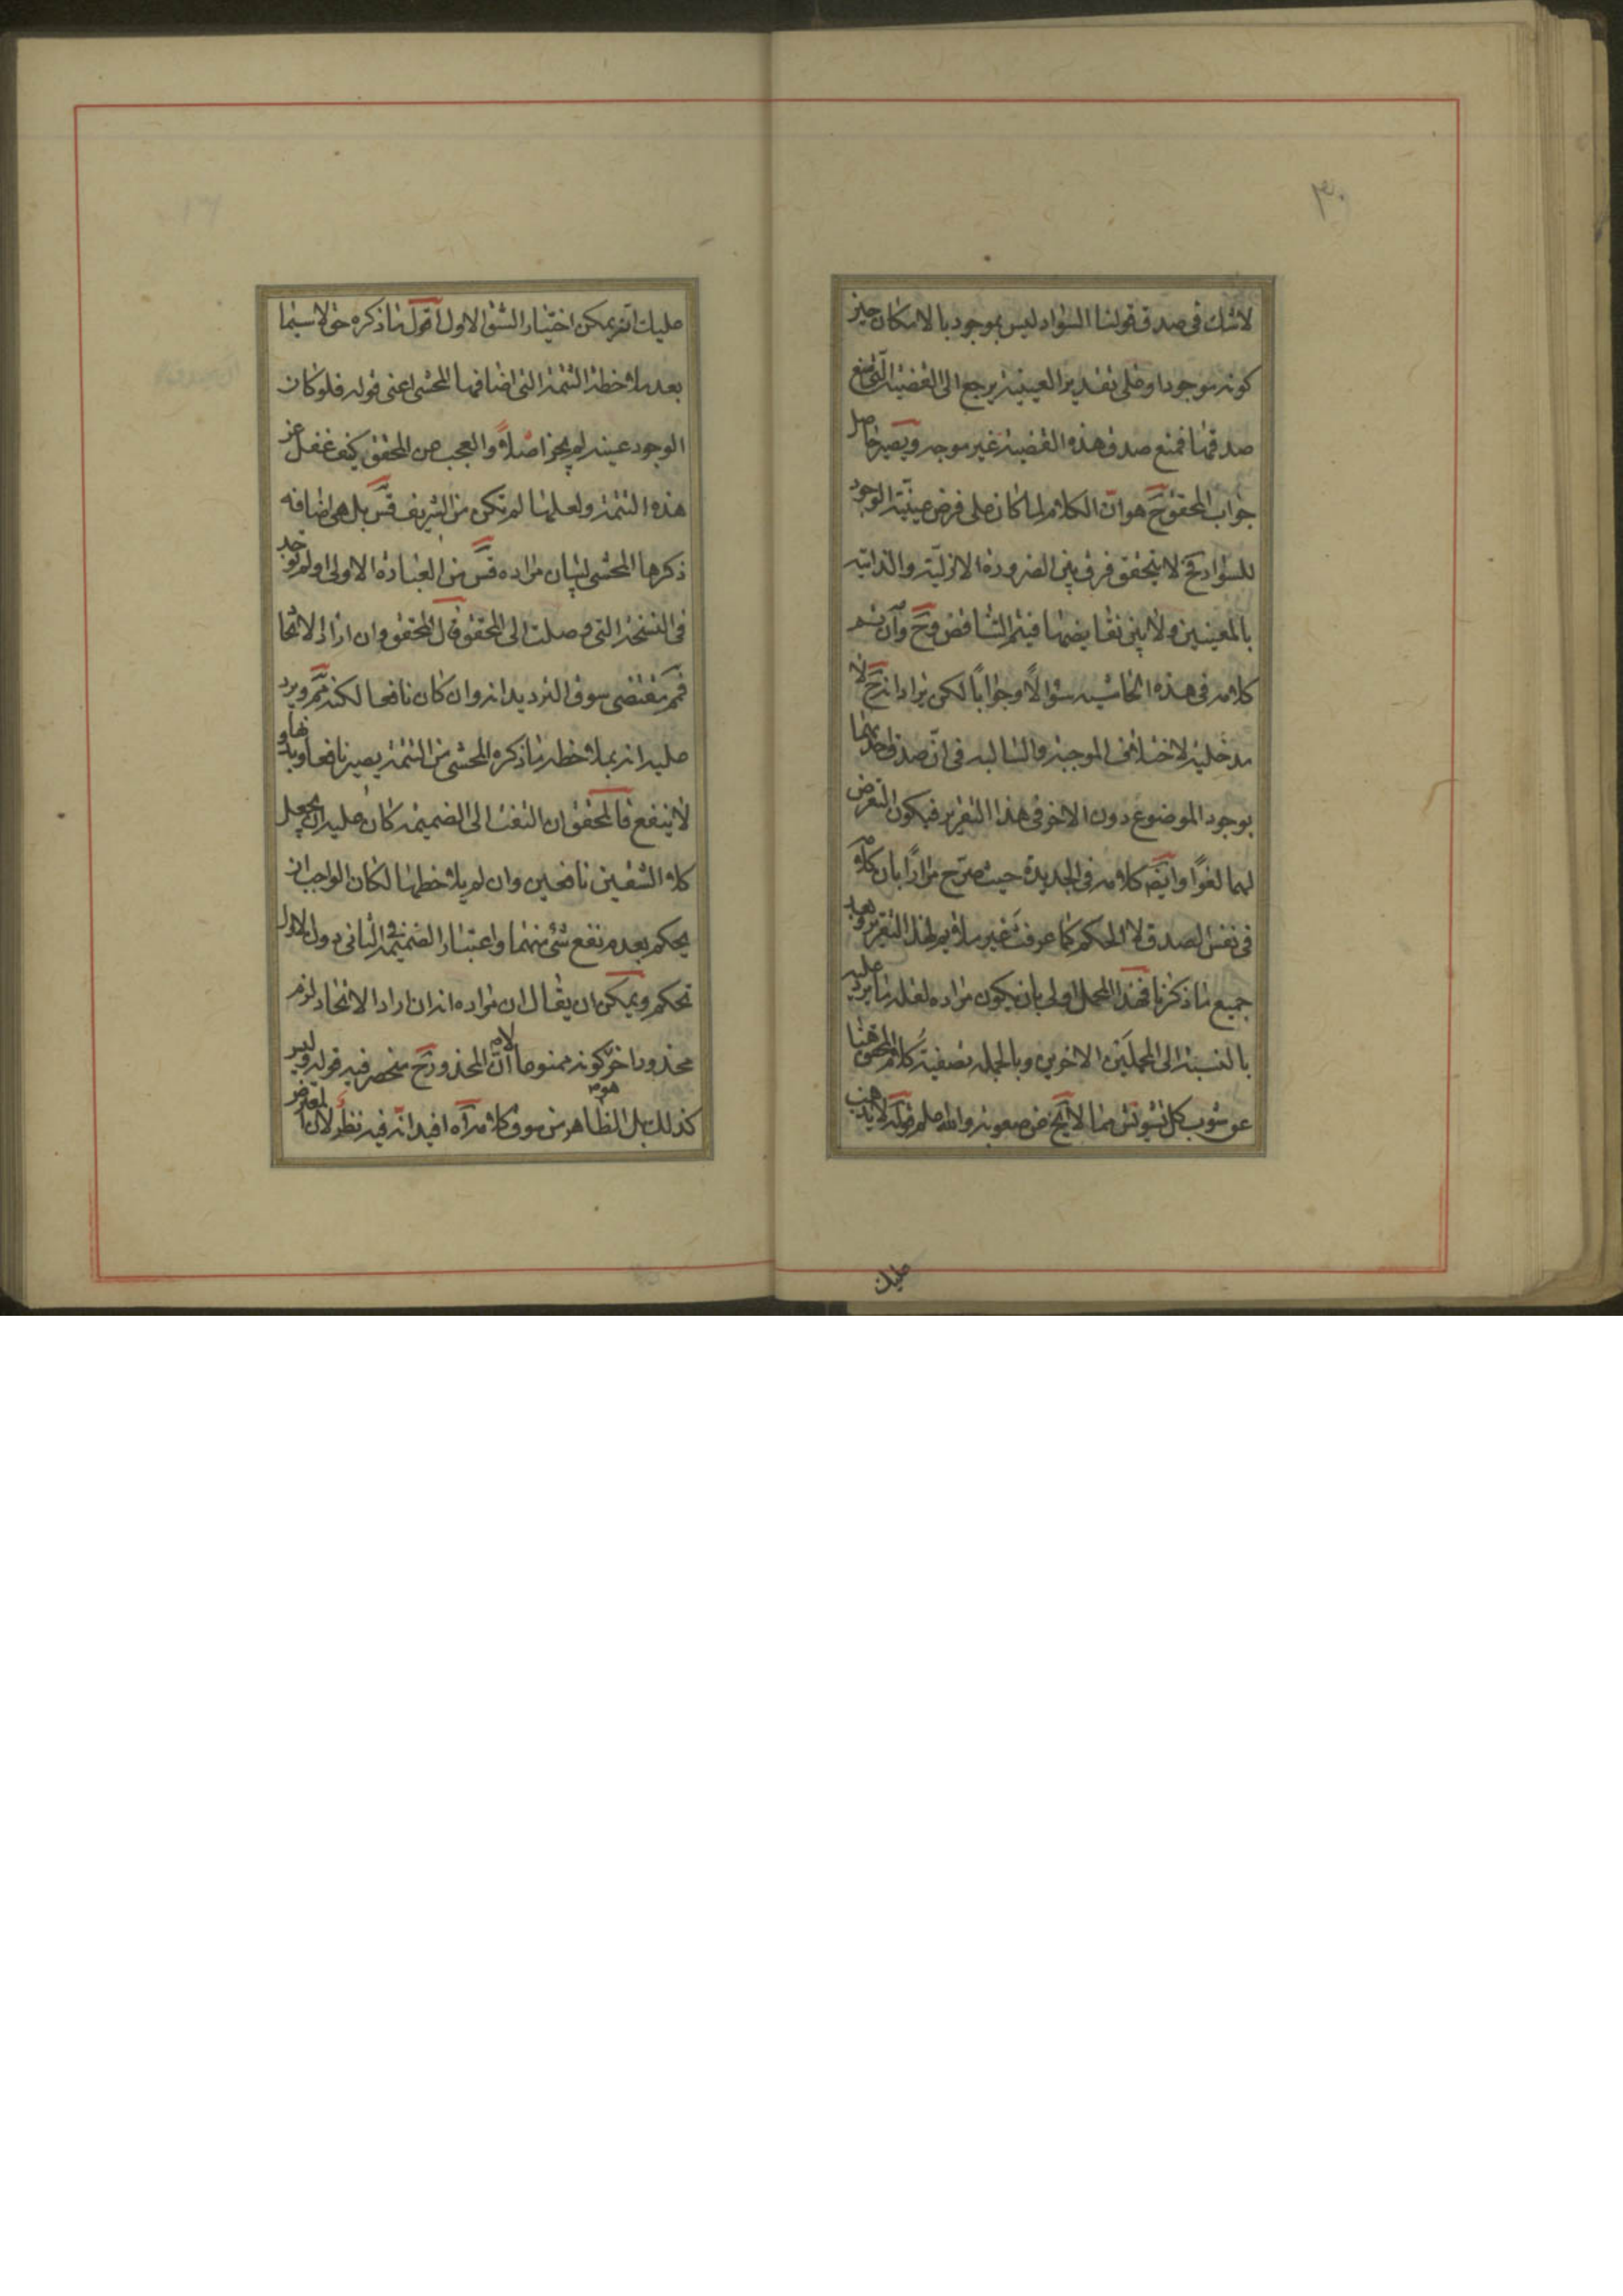 ٣٠
لا شك فى صدق قولنا السواد ليس بموجود بالامكان حين
كونه موجودا وعلى تقدير العينية يرجع الى القضية التى منع
صدقها فمنع صدق هذه القضية غير موجه ويصير حاصل
جواب المحقق ح هو ان الكلام لما كان على فرض عينية الوجود
للسواد فح لا يتحقق فرق بين الضرورة الازلية والذاتية
بالمعنيين ولا بين نقايضها فيتم التناقض وح وان تم
كلامه فى هذه الحاشيه سؤالاً وجواباً لكن يراد انه ح لا
مدخلية لاختلاف الموجبة والسالبه فى ان صدق احديهما
بوجود الموضوع دون الاخر فى هذا التقرير فيكون التعرض
لهما لغوًا وايضم كلامه فى الجديدة حيث صرح مرارًا بان كلامه
فى نفس الصدق لا الحكم كما عرفت غير ملايم لهذا التقرير وبعد
جميع ما ذكرنا فهذا المحمل اولى بان يكون مراده لقلة ما يرد عليه
بالنسبة الى المحملين الاخرين وبالجمله تصفية كلام المحقق هنا
عن شوب كل تشويش مما لا يخ عن صعوبة والله علم قوله لا يذهب
عليك
عليك انه يمكن اختيار الشق الاول اقول ما ذكره حق لا سيما
بعد ملاحظة التتمة التى اضافها المحشى اعنى قوله فلو كان
الوجود عينه لم يجز اصلاً والعجب من المحقق كيف غفل عن
هذه التتمة ولعلها لم تكن من الشريف قس بل هى اضافه
ذكرها المحشى لبيان مراده قس من العبارة الاولى او لم توجد
فى النسخة التى وصلت الى المحقق قال المحقق وان اراد الاتحا
فمم مقتضى سوق الترديد انه وان كان نافعا لكنه مم ويرد
عليه انه بملاحظة ما ذكره المحشى من التتمة يصير نافعا وبدونها
لا ينفع فالمحقق ان التفت الى الضميمة كان عليه ان يجعل
كلا الشقين نافعين وان لم يلاحظها لكان الواجب ان
يحكم بعدم نفع شئ منهما واعتبار الضميمة فى الثانى دون الاول
تحكم ويمكن ان يقال ان مراده انه ان اراد الاتحاد لزم
محذورا اخر كونه ممنوعا لا ان المحذور ح منحصر فيه قوله وليس
كذلك بل الظاهر من سوق كلامه اه افيد انه فيه نظر لان المعترض